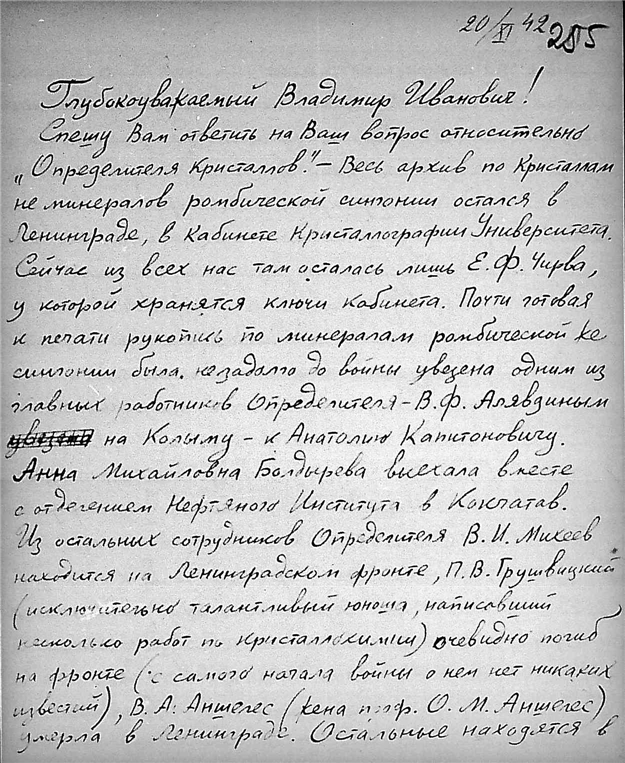 20/XI 42 285
Глубокоуважаемый Владимир Иванович!
Спешу Вам ответить на Ваш вопрос относительно
„Определителя Кристаллов." – Весь архив по кристаллам
не минералов ромбической сингонии остался в
Ленинграде, в Кабинете Кристаллографии Университета.
Сейчас из всех нас там осталась лишь Е. Ф. Чирва,
у которой хранятся ключи кабинета. Почти готовая
к печати рукопись по минералам ромбической же
сингонии была незадолго до войны увезена одним из
главных работников Определителя – В. Ф. Алявдиным
на Колыму – к Анатолию Капитоновичу.
Анна Михайловна Болдырева выехала вместе
с отделением Нефтяного Института в Кокчатав.
Из остальных сотрудников Определителя В. И. Михеев
находится на Ленинградском фронте, П. В. Грушвицкий
(исключительно талантливый юноша, написавший
несколько работ по кристаллохимии) очевидно погиб
на фронте (с самого начала войны о нем нет никаких
известий), В. А. Аншелес (жена проф. О. М. Аншелес)
умерла в Ленинграде. Остальные находятся в